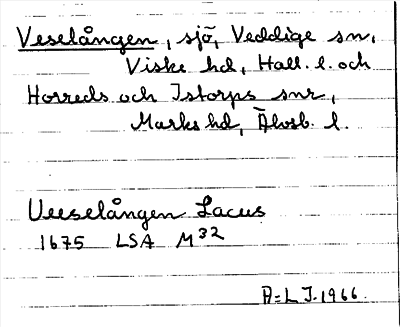 Veselången, sjö, Veddige sn,
Viske hd, Hall. l. och
Horreds och Istorps snr,
Marks hd, Älvsb. l.
Veeselången Lacus
1675 LSA M32
A-L J. 1966.